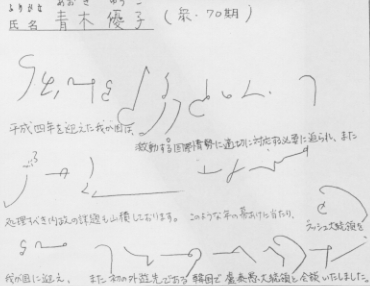 ふりがな あおき ゆうこ
氏名 青木 優子 (衆・70期)
平成四年を迎えた我が国は、
激動する国際情勢に適切に対応する必要に迫られ、また
処理すべき内政の課題も山積しております。 このような年の幕あけに当たり、
ブッシュ大統領を
我が国に迎え、 また初の外遊先である 韓国で 盧泰愚大統領と会談いたしました。